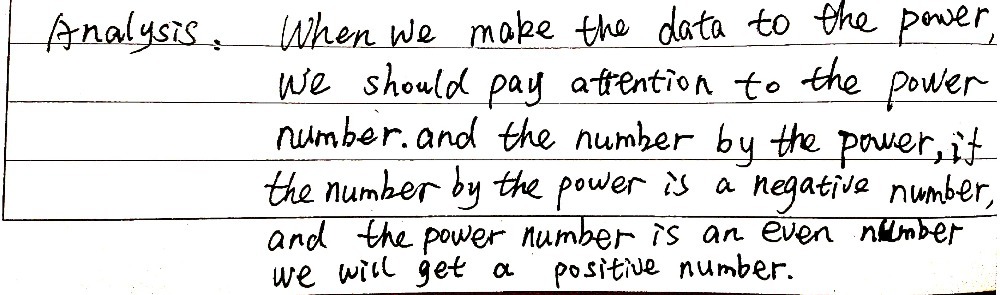 Analysis: When we make the data to the power,
we should pay attention to the power
number. and the number by the power, if
the number by the power is a negative number,
and the power number is an even number
we will get a positive number.